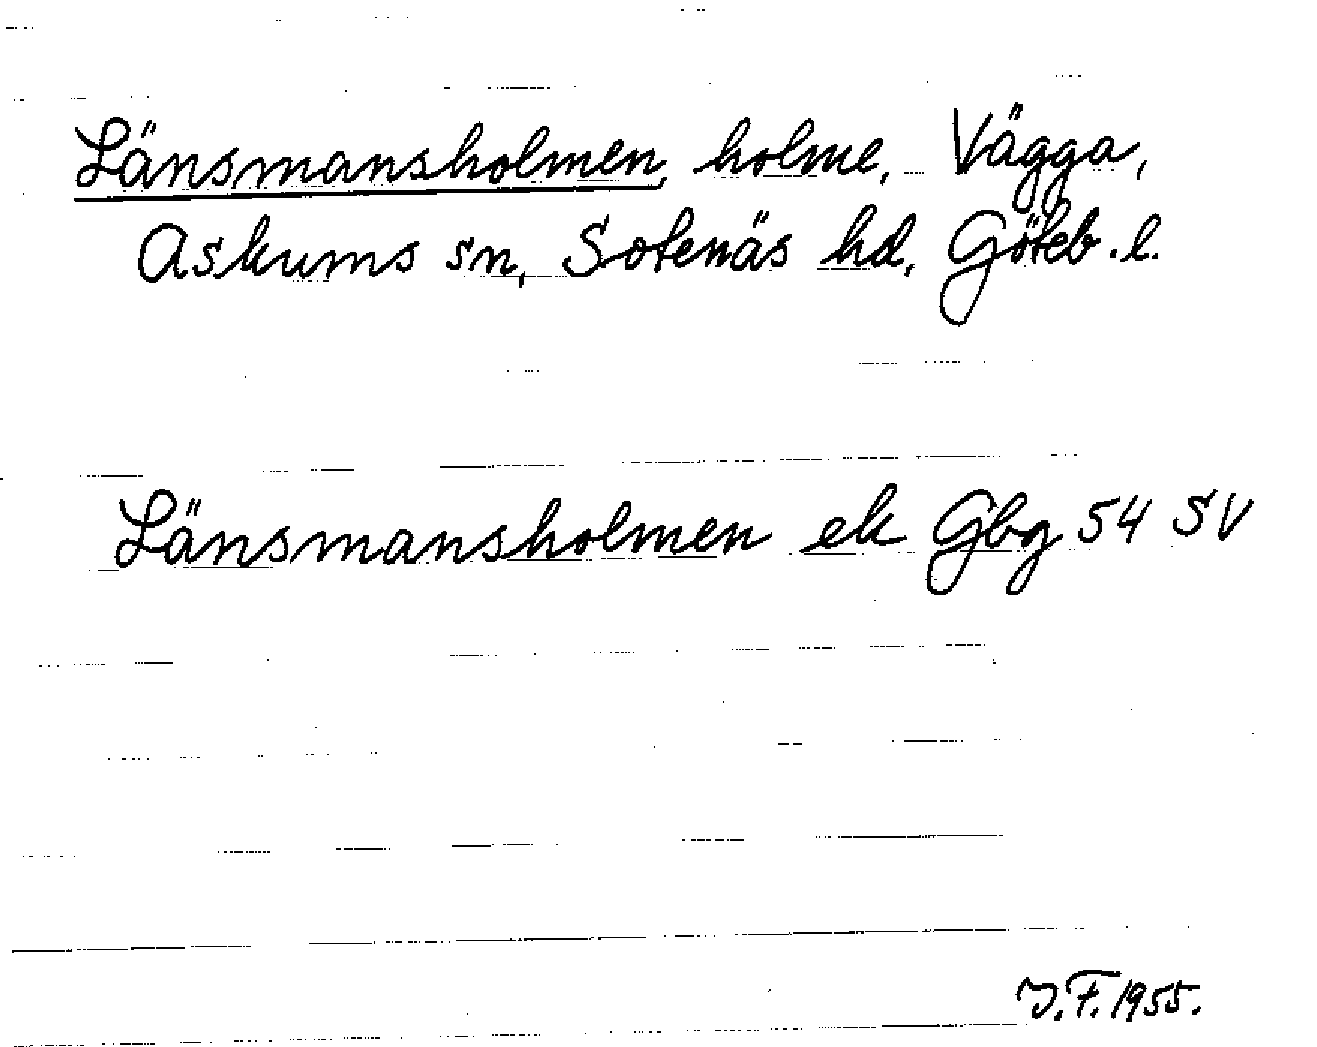 Länsmansholmen, holme, Vägga,
Askums sn, Sotenäs hd, Göteb.l.
Länsmansholmen ek Gbg 54 SV
J.F. 1955.